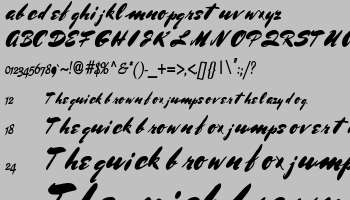 abcdefghijklmnopqrstuvwxyz
ABCDEFGHIJKLMNOPQRSTU
0123456789`~!@#$%^&*()-_+=>,<[]{}|\":;/?
12 Thequickbrownfoxjumpsoverthelazydog
18 Thequickbrownfoxjumpsovert
24 Thequickbrownfoxjump